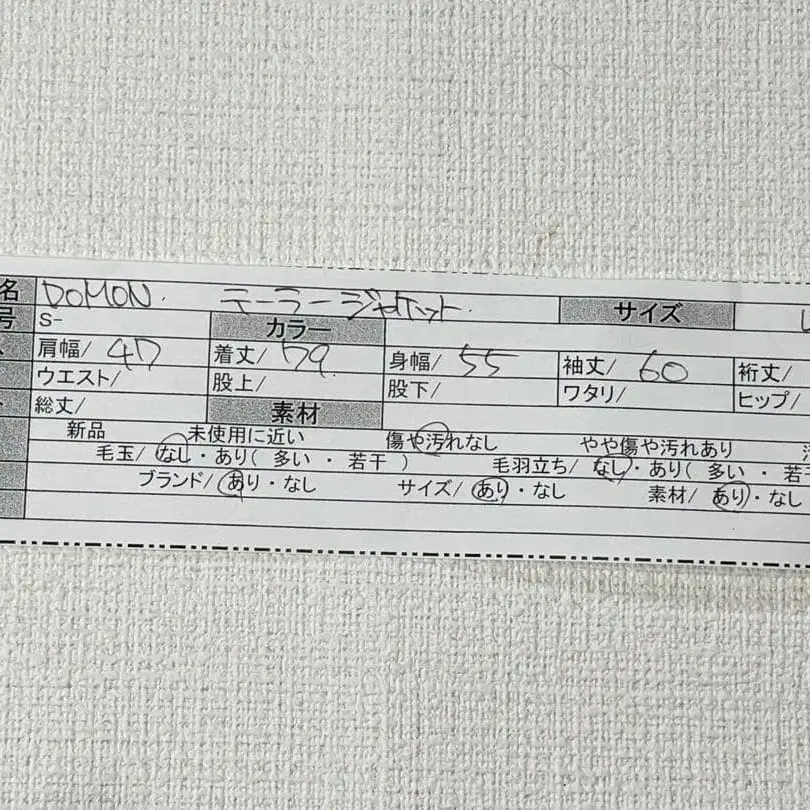 名 DOMON. テーラージャケット. サイズ L
号 S- カラー
肩幅/ 47 着丈/ 79. 身幅/ 55 袖丈/ 60 裄丈/
ウエスト/ 股上/ 股下/ ワタリ/ ヒップ/
総丈/ 素材
新品 未使用に近い 傷や汚れなし やや傷や汚れあり
毛玉/ なし・あり( 多い ・ 若干 ) 毛羽立ち/ なし・あり( 多い ・ 若干
ブランド/ あり・なし サイズ/ あり・なし 素材/ あり・なし